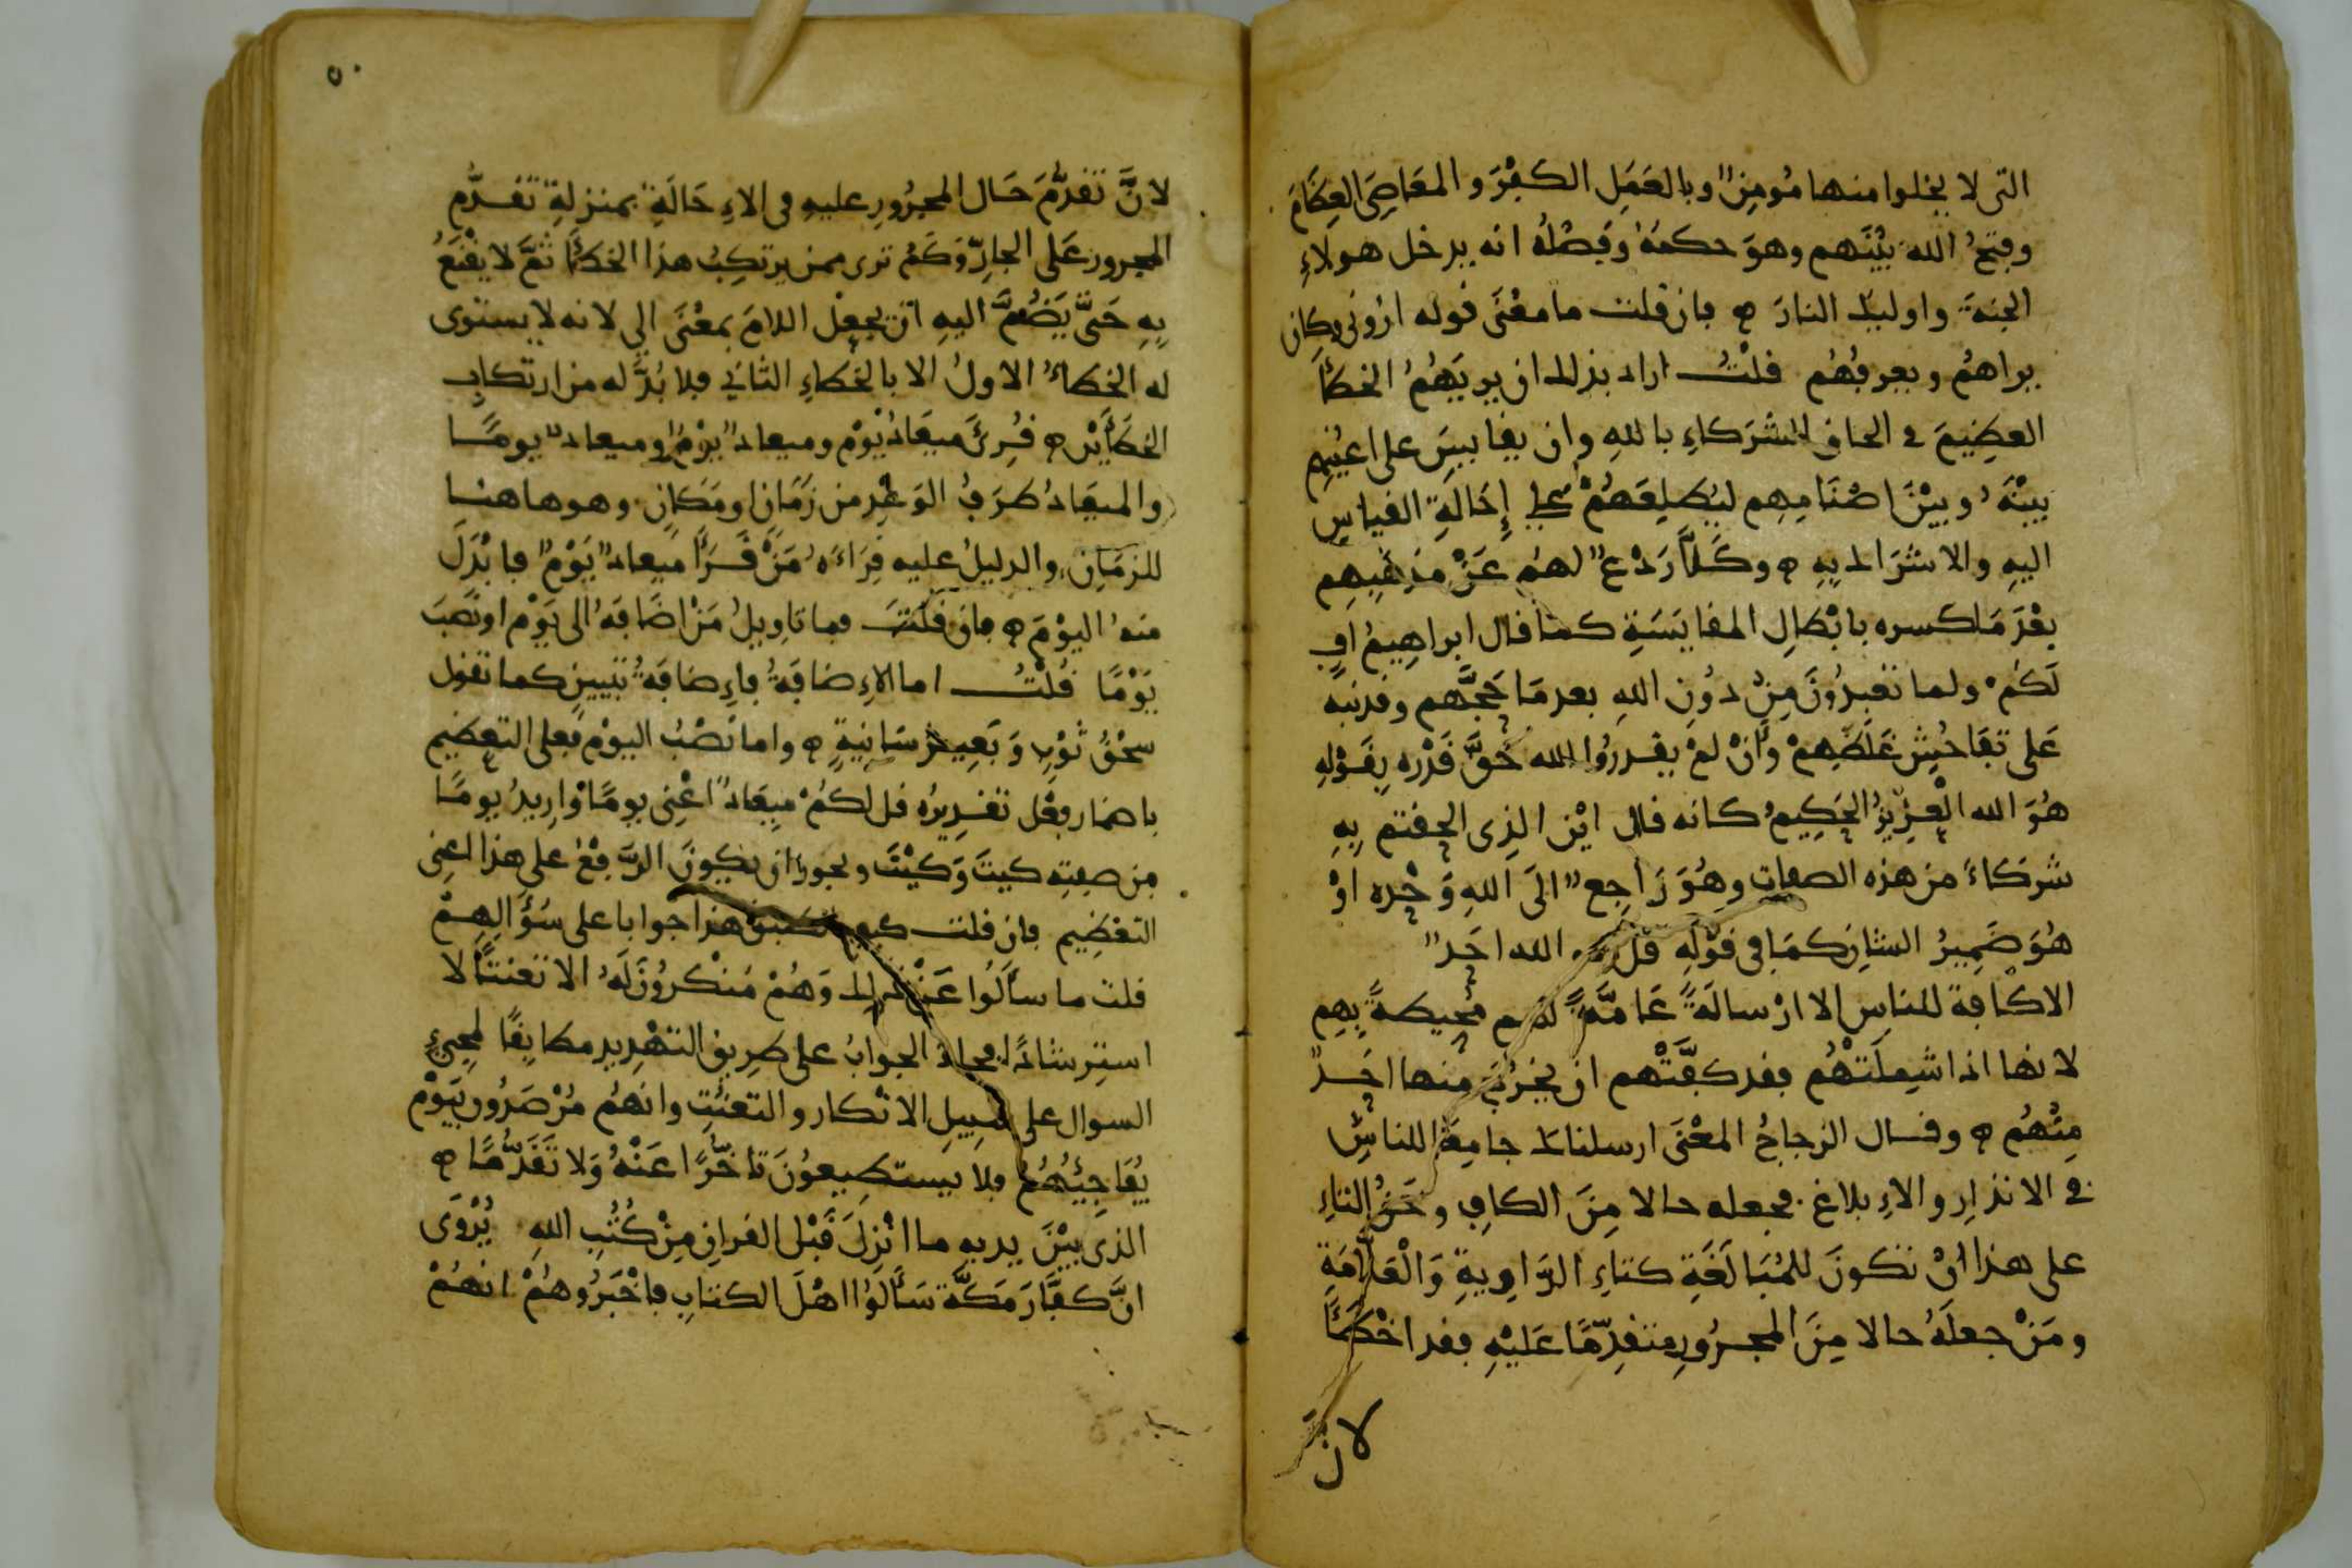 التى لا يخلوا منها مُومِنٌ وبالعَمَلِ الكُفْرَ والمعَاصِىَ العِظَامَ
وفتحُ الله بيْنَهم وهوَ حكمُهُ وفصْلُهُ انه يدخل هولاءِ
الجنةَ واوليك النارَ ه فان قلت ما معْنَى قوله ارُونى وكان
يراهمُ ويعرفُهُم قلْتُ اراد بذلك ان يريَهُمُ الخطأ
العظِيمَ في الحاق الشرَكاءِ باللهِ وان يقاييسَ على اعْيُنِهِم
بيْنَهُ وبيْنَ اصْنَامِهِم ليُطلِعَهُمْ على إِحَالَةِ القياسِ
اليهِ والاشرَاك بِهِ ه وكَلَّا رَدْعٌ لهم عَنْ مذهَبِهِم
بعْدَ مَا كسره بابْطالِ المقايَسَةِ كما قال ابراهِيمُ افٍ
لَكُمْ ولما تعْبدُونَ مِنْ دوُنِ اللهِ بعد مَا حَجَّهم وقد نبه
عَلى تفَاحُشِ غَلَطِهِمْ وأنْ لَمْ يقدروُا الله حَقَّ قَدْره بقَوْلِهِ
هُوَ الله الْعزِيزُ الحَكِيمُ كانه قال ايْنَ الذِى الحقتم بِهِ
شركَاءَ من هذه الصفات وهُوَ رَاجعٌ الَى اللهِ وَحْده اوْ
هُوَ ضَمِيرُ الشان كمَا في قوْلِه قلْ هو الله احَدٌ
الا كافة للناس الا ارْسالَةً عَامَّةً لهم محِيطةً بهِم
لانها اذا شمِلَتْهُم فقد كفَّتْهم ان يخرُجَ منها احَدٌ
مِنْهُم ه وقال الزجاجُ المعْنَى ارسلناك جامِعًا للناسِ
في الانذارِ والاِبلاغ فجعله حالا مِنَ الكافِ وحَقُّ التاءِ
على هذا انْ تكونَ للمُبَالَغَةِ كتاءِ الرَّاوِيةِ وَالْعَلَّامَةِ
ومَنْ جعلَهُ حالا مِنَ المجرُورِ متقدِّمًا عَليْهِ فقد اخْطَأَ
لان
٥٠
لانَّ تقدُّمَ حَال المجرُورِ عليهِ فى الاِحَالَةِ بمنزلةِ تقدُّم
المجرورِ عَلى الجارِّ وَكَمْ ترى ممن يرتكِبُ هذا الخطأ ثمَّ لا يقْنَعُ
بِهِ حَتَّى يَضُمَّ اليهِ ان يجعل اللامَ بمعْنَى الى لانه لا يستوى
له الخطأُ الاولُ الا بالخطاءِ الثاني فلا بُدَّ له من ارتكابِ
الخطَأَيْنِ ه قُرِئَ ميعَادُ يَوْم وميعادٌ يَوْمٌ وميعادٌ يومًا
والميعَادُ ظرَفُ الوَعْدِ من زَمَان اومَكان وهو هاهنا
للزمَانِ والدليلُ عليه قرَاءَةُ مَنْ قَرَأَ ميعادٌ يَوْمٌ فابْدَلَ
منهُ اليوْمَ ه فان قلْتَ فما تاويلُ مَنْ اضَافَهُ الى يَوْم اونَصَبَ
يَوْمًا قُلْتُ اما الاِضافَةُ فاِضافَةُ تبيين كما تقول
سحْقُ ثوْبٍ وَبَعِيرُ سَانِيَةٍ ه واما نصْبُ اليوْم فعلى التعظيم
باضمار فِعْل تقدِيرُه قل لكُمْ ميعَادٌ اعْنِى يومًا اوْ ارِيدُ يومًا
مِن صفتِه كيتَ وَكيْتَ ويجوزُ ان يكونَ الرَّفعُ على هذا اعنى
التعْظِيم فان قلت كيف انطبق هذا جوابا على سُؤالِهِمْ
قلت ما سألُوا عَنْ ذلك وَهُمْ مُنْكرُونَ لَهُ الا تعَنتًا لا
استِرشادًا فجاءَ الجوابُ على طرِيق التهْدِيد مطابقًا لمجىءِ
السوال على سبِيلِ الانْكار والتعنُّتِ وانهمُ مُرْصَدُونَ بيَوْم
يُفَاجِئُهُمُ فلا يستطِيعوُنَ تاخُّرًا عَنْهُ وَلا تقَدُّمًا ه
الذى بيْنَ يديه ما انْزِلَ قَبْلَ القرانِ مِنْ كُتُبِ اللهِ يُرْوَى
انَّ كفَّارَ مَكَّةَ سَأَلُوا اهْلَ الكتابِ فاخْبَرُوهُمْ انهُمْ